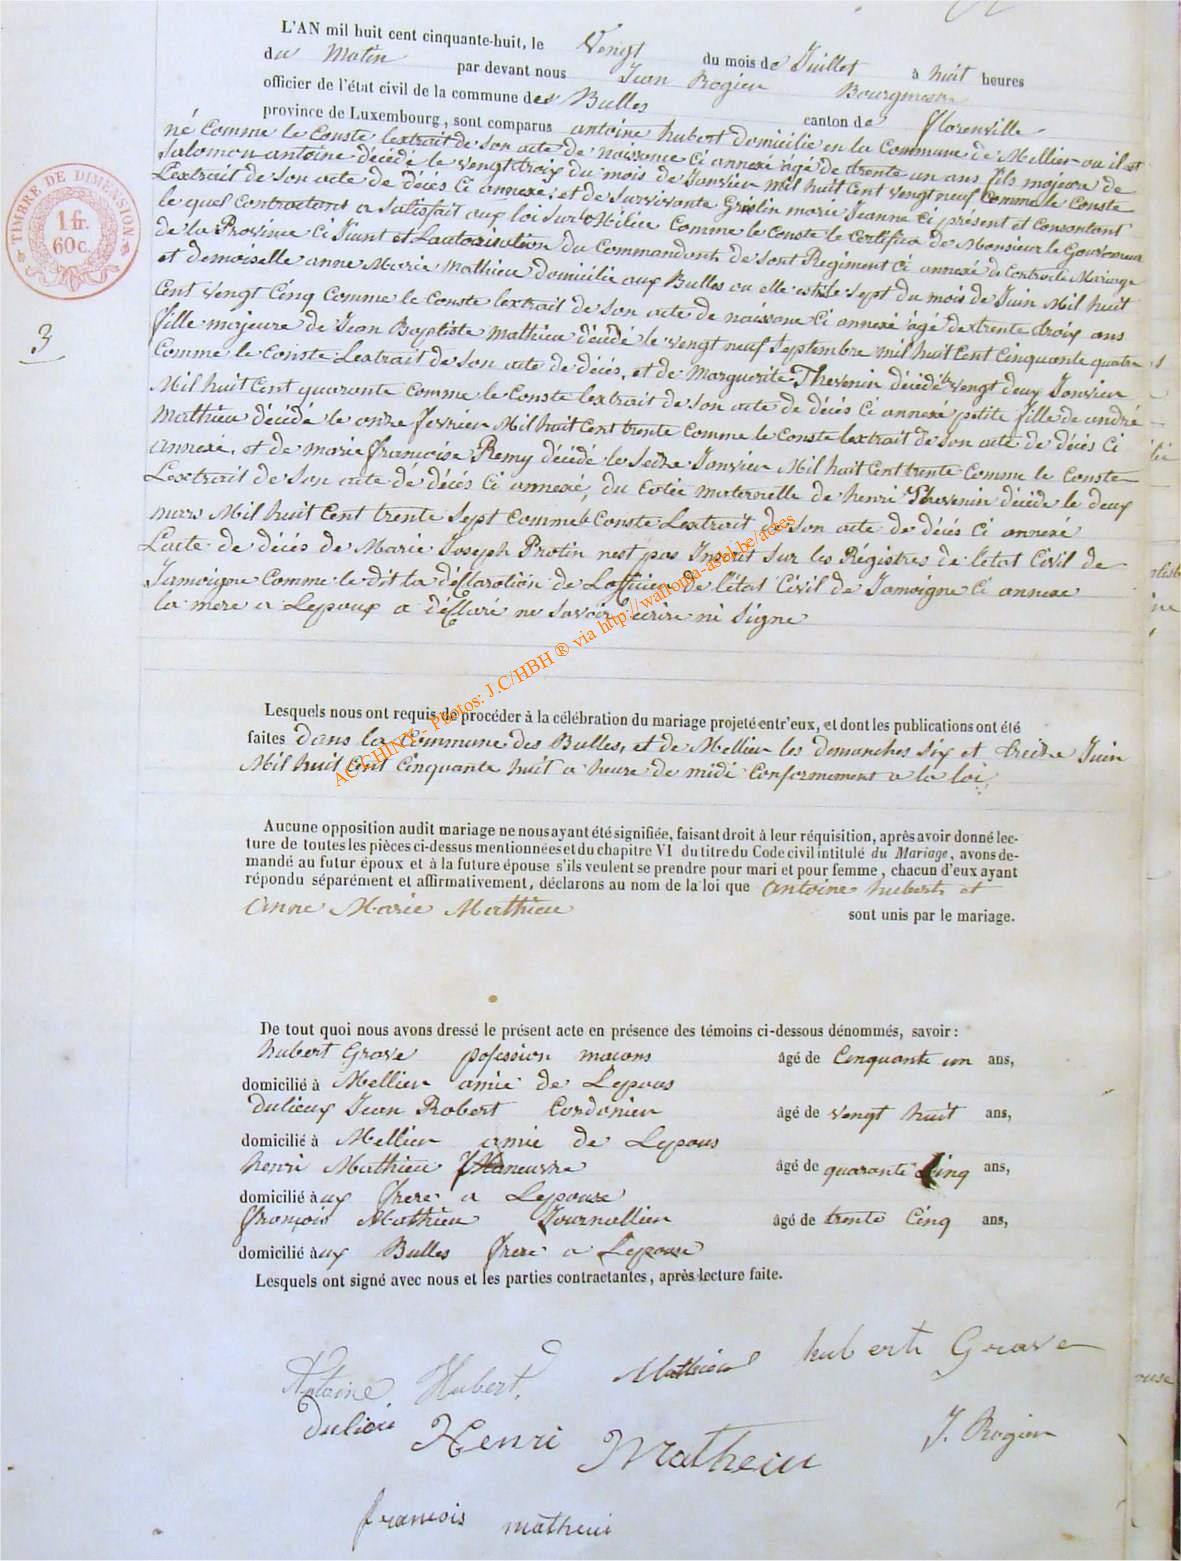 L'AN mil huit cent cinquante-huit, le Vengt du mois de Juillet à huit heures
du Matin par devant nous Jean Rogier Bourgmestre
officier de l'état civil de la commune des Bulles canton de Florenville
province de Luxembourg, sont comparus antoine hubert domicilié en la Commune de Mellier ou il est
né comme le Conste lextrait de son acte de naissance Ci annexé âgé de trente un ans fils majeure de
Salomon antoine décédé le vengt troix du mois de Janvier Mil huit Cent vengt neuf Comme le Conste
Lextrait de son acte de décés Ci annexé, et de Survivante Grislin marie Jeanne Ci présent et Consontant
le quel Contractant a Satisfait aux loi sur la Milice Comme le Conste le Certifica de Monsieur le Gouverneur
de la Province Ci Jiant et Lautorisation du Commandant de sont Regiment Ci annexé de Contracte Mariage
et demoiselle anne Marie Mathieu domicilié aux Bulles ou elle est le Sept du mois de Juin Mil huit
Cent vengt Cinq Comme le Conste lextrait de son acte de naissance Ci annexé âgé de trente troix ans
fille majeure de Jean Baptiste Mathieu décédé le vengt neuf Septembre mil huit Cent Cinquante quatre
Comme le Conste Lextrait de son acte de décés, et de Marguerite Thevenin décédé le vengt deux Janvier
Mil huit Cent quarante comme le Conste lextrait de son acte de décés Ci annexé petite fille de andré
Mathieu décédé le onze fevrier Mil huit Cent trente comme le Conste lextrait de son acte de décés Ci
annexé, et de marie françoise Remy décédé le Seize Janvier Mil huit Cent trente Comme le Conste
Lextrait de son acte de décés Ci annexé, du Cotée maternelle de henri Thevenin décide le deux
mars Mil huit Cent trente Sept Comme le Conste Lextrait de son acte de décés Ci annexé
Lacte de décés de Marie Joseph Protin nest pas Inscrit sur les Régistres de letat Civil de
Jamoigne Comme le dit la déclaration de Lofficier de létat Civil de Jamoigne Ci annexe
la mere a Lepoux a déclaré ne Savoir ecrire ni Signe
Lesquels nous ont requis de procéder à la célébration du mariage projeté entr'eux, et dont les publications ont été
faites dans la Commune des Bulles, et de Mellier les dimanches Six et treize Juin
Mil huit Cent Cinquante huit a heure de midi Conformement a la loi
Aucune opposition audit mariage ne nous ayant été signifiée, faisant droit à leur réquisition, après avoir donné lec-
ture de toutes les pièces ci-dessus mentionnées et du chapitre VI du titre du Code civil intitulé du Mariage, avons de-
mandé au futur époux et à la future épouse s'ils veulent se prendre pour mari et pour femme, chacun d'eux ayant
répondu séparément et affirmativement, déclarons au nom de la loi que antoine huberts et
anne Marie Mathieu sont unis par le mariage.
De tout quoi nous avons dressé le présent acte en présence des témoins ci-dessous dénommés, savoir:
hubert Grave pofession macons âgé de Cinquante un ans,
domicilié à Mellier amie de Lepous
Dulieux Jean Robert Cordonier âgé de vengt huit ans,
domicilié à Mellier amie de Lepous
henri Mathieu Maneuvre âgé de quarante Cinq ans,
domicilié à ux frere a Lepouse
françois Mathieu Journallier âgé de trente Cinq ans,
domicilié à ux Bulles frere a Lepouse
Lesquels ont signé avec nous et les parties contractantes, après lecture faite.
Antoine Hubert. Mathieu huberti Grave
Dulieu Henri Matheiu J. Rogier
francois matheiu
TIMBRE DE DIMENSION
1 fr.
60 c.
3
ACT CHINY - Photos: J.C/HBH ® via http://wallonia-asbl.be/actes